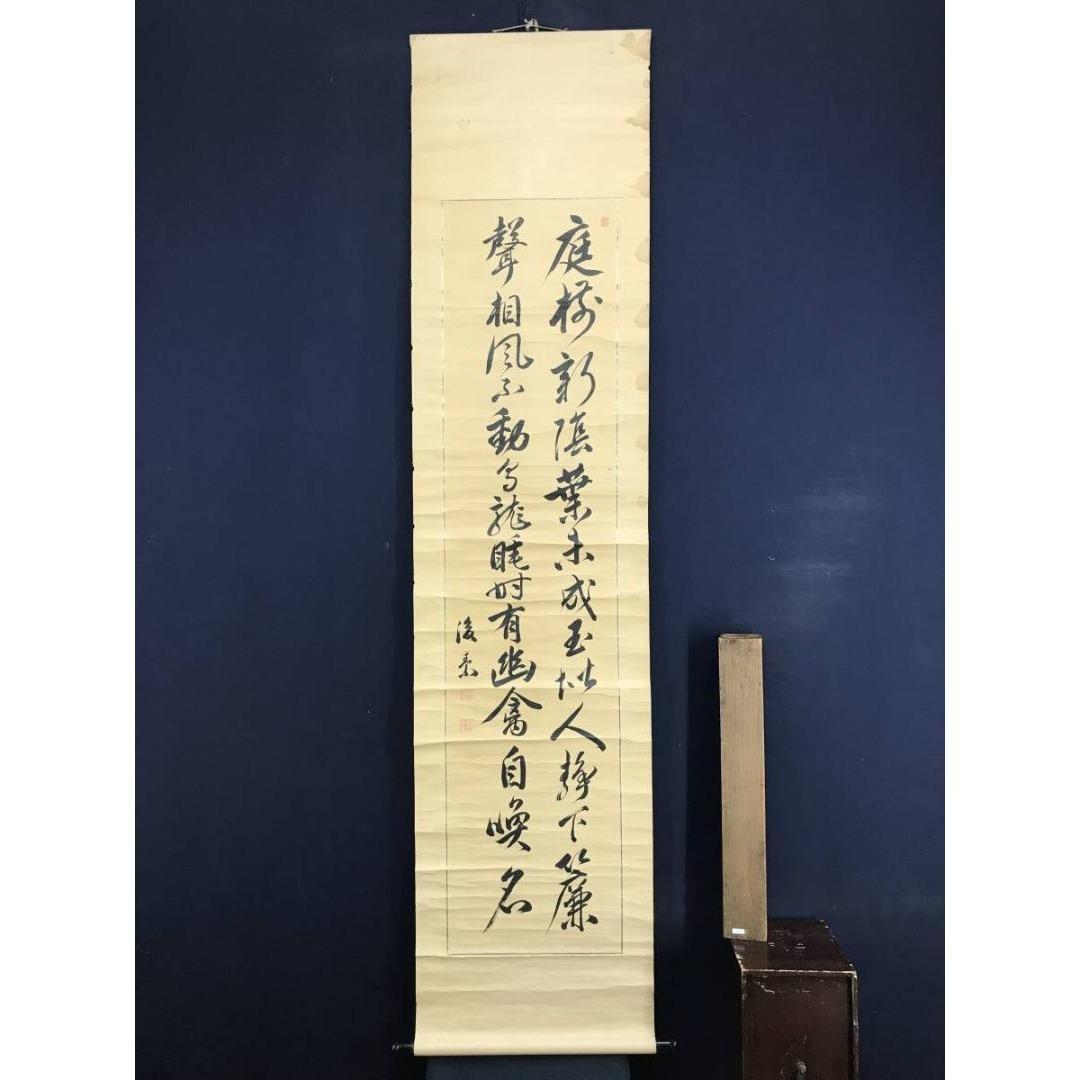 庭樹新陰葉未成玉堦人靜下簾
聲相風不動烏龍睡時有幽禽自喚名
後素